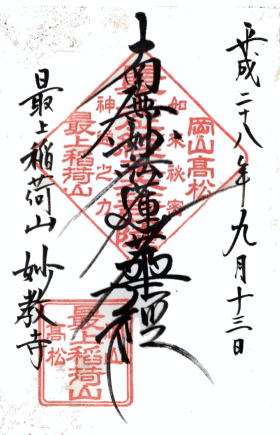 平成二十八年九月十三日
岡山髙松
如来秘密
南無妙法蓮華經
神通之力
最上稲荷山
最上稲荷山 妙教寺
岡山
最上稲荷山
髙松